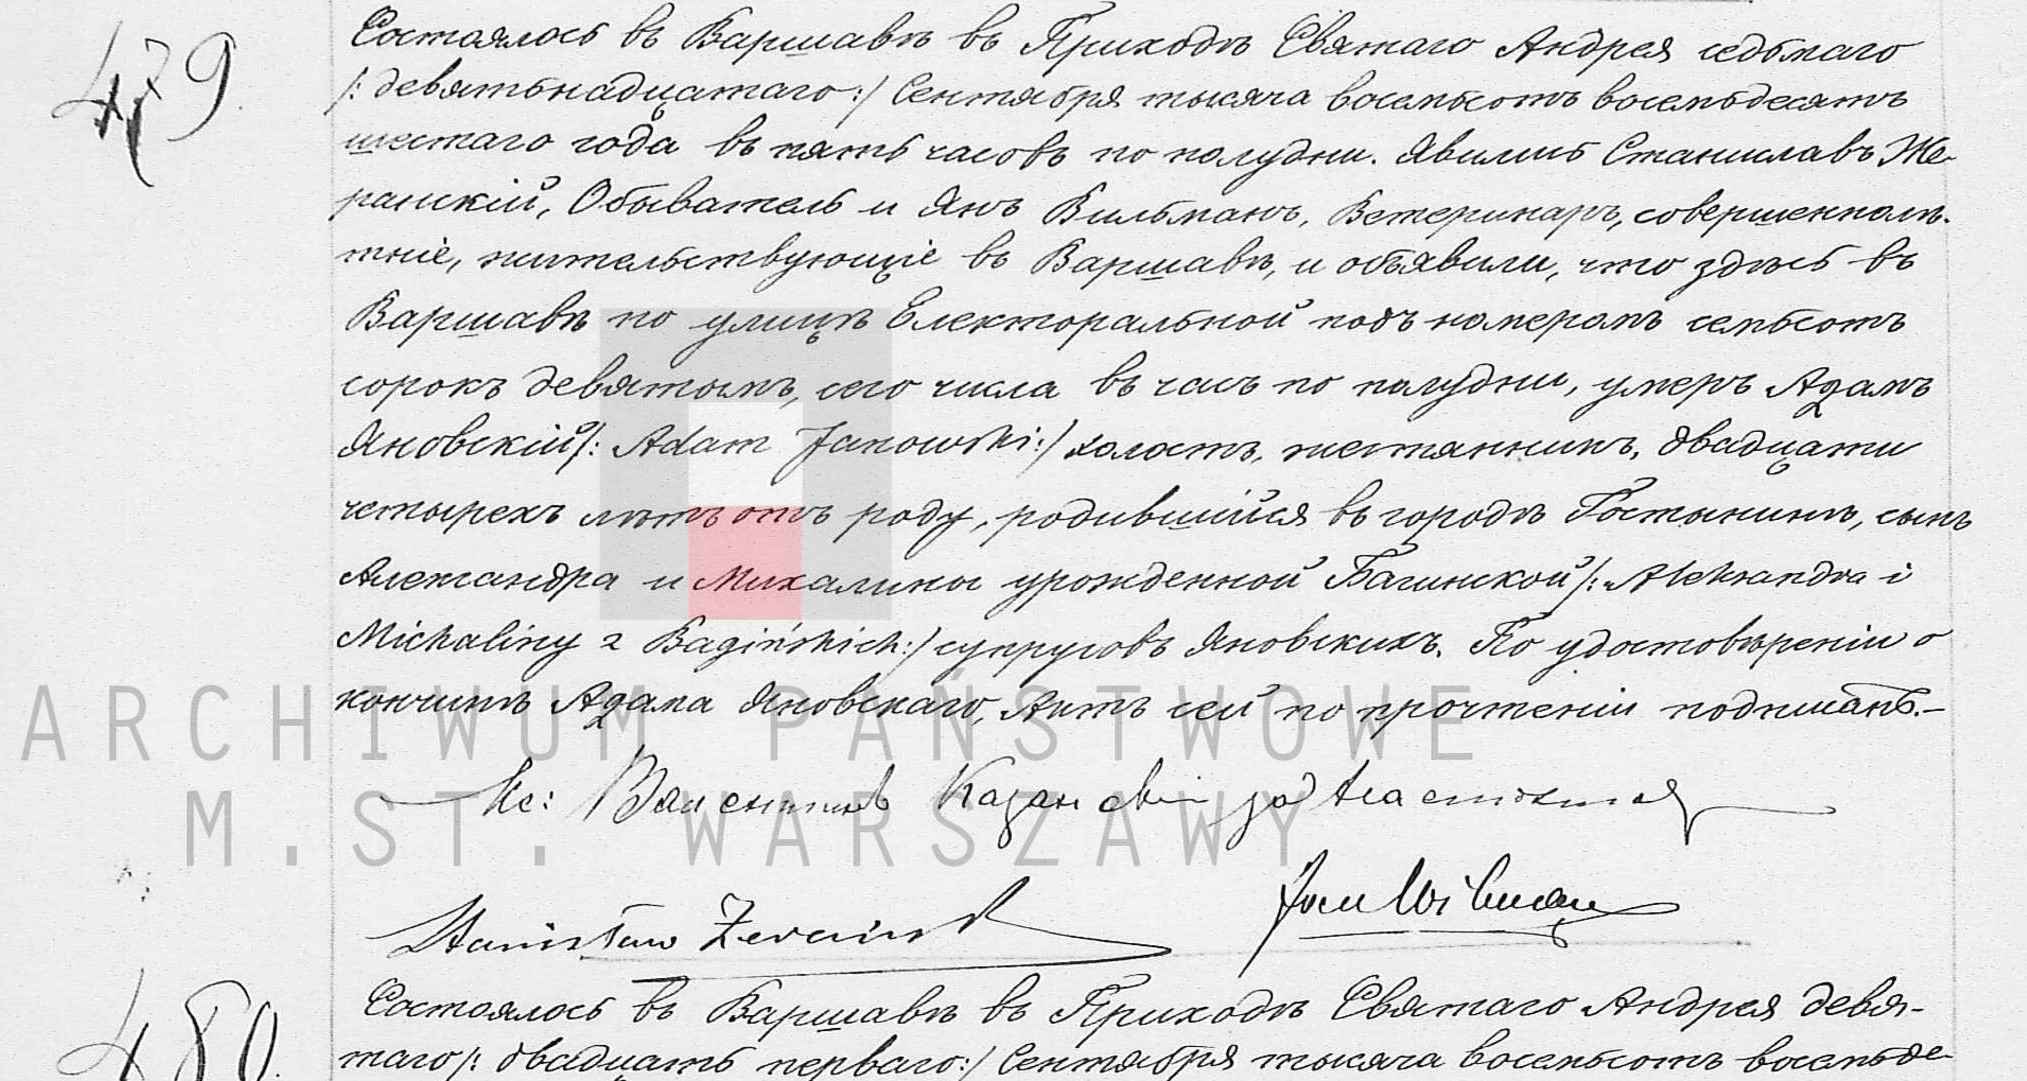 479
Состоялось въ Варшавѣ въ Приходѣ Святаго Андрея седьмаго
/: девятьнадцатаго :/ Сентября тысяча восемьсотъ восемьдесятъ
шестаго года въ пять часовъ по полудни. Явились Станиславъ Же-
ранскій, Обыватель и Янъ Вильманъ, Ветеринаръ, совершеннолѣ-
тніе, жительствующіе въ Варшавѣ, и объявили, что здѣсь въ
Варшавѣ по улицѣ Електоральной подъ номеромъ семьсотъ
сорокъ девятомъ, сего числа въ часъ по полудни, умеръ Адамъ
Яновскій /: Adam Janowski :/ холостъ, жестянникъ, двадцати
четырехъ лѣтъ отъ роду, родившійся въ городѣ Гостынинѣ, сынъ
Александра и Михалины урожденной Багинской /: Aleksandra i
Michaliny z Bagińskich :/ супруговъ Яновскихъ. По удостовѣреніи о
кончинѣ Адама Яновскаго, Актъ сей по прочтеніи подписанъ.—
ARCHIWUM PAŃSTWOWE
Кс: Валентинъ за Настоятеля
M.ST. WARSZAWY
Jan Wilman
Stanisław Żerański
480.
Состоялось въ Варшавѣ въ Приходѣ Святаго Андрея девя-
таго /: двадцать перваго :/ Сентября тысяча восемьсотъ восемьде-